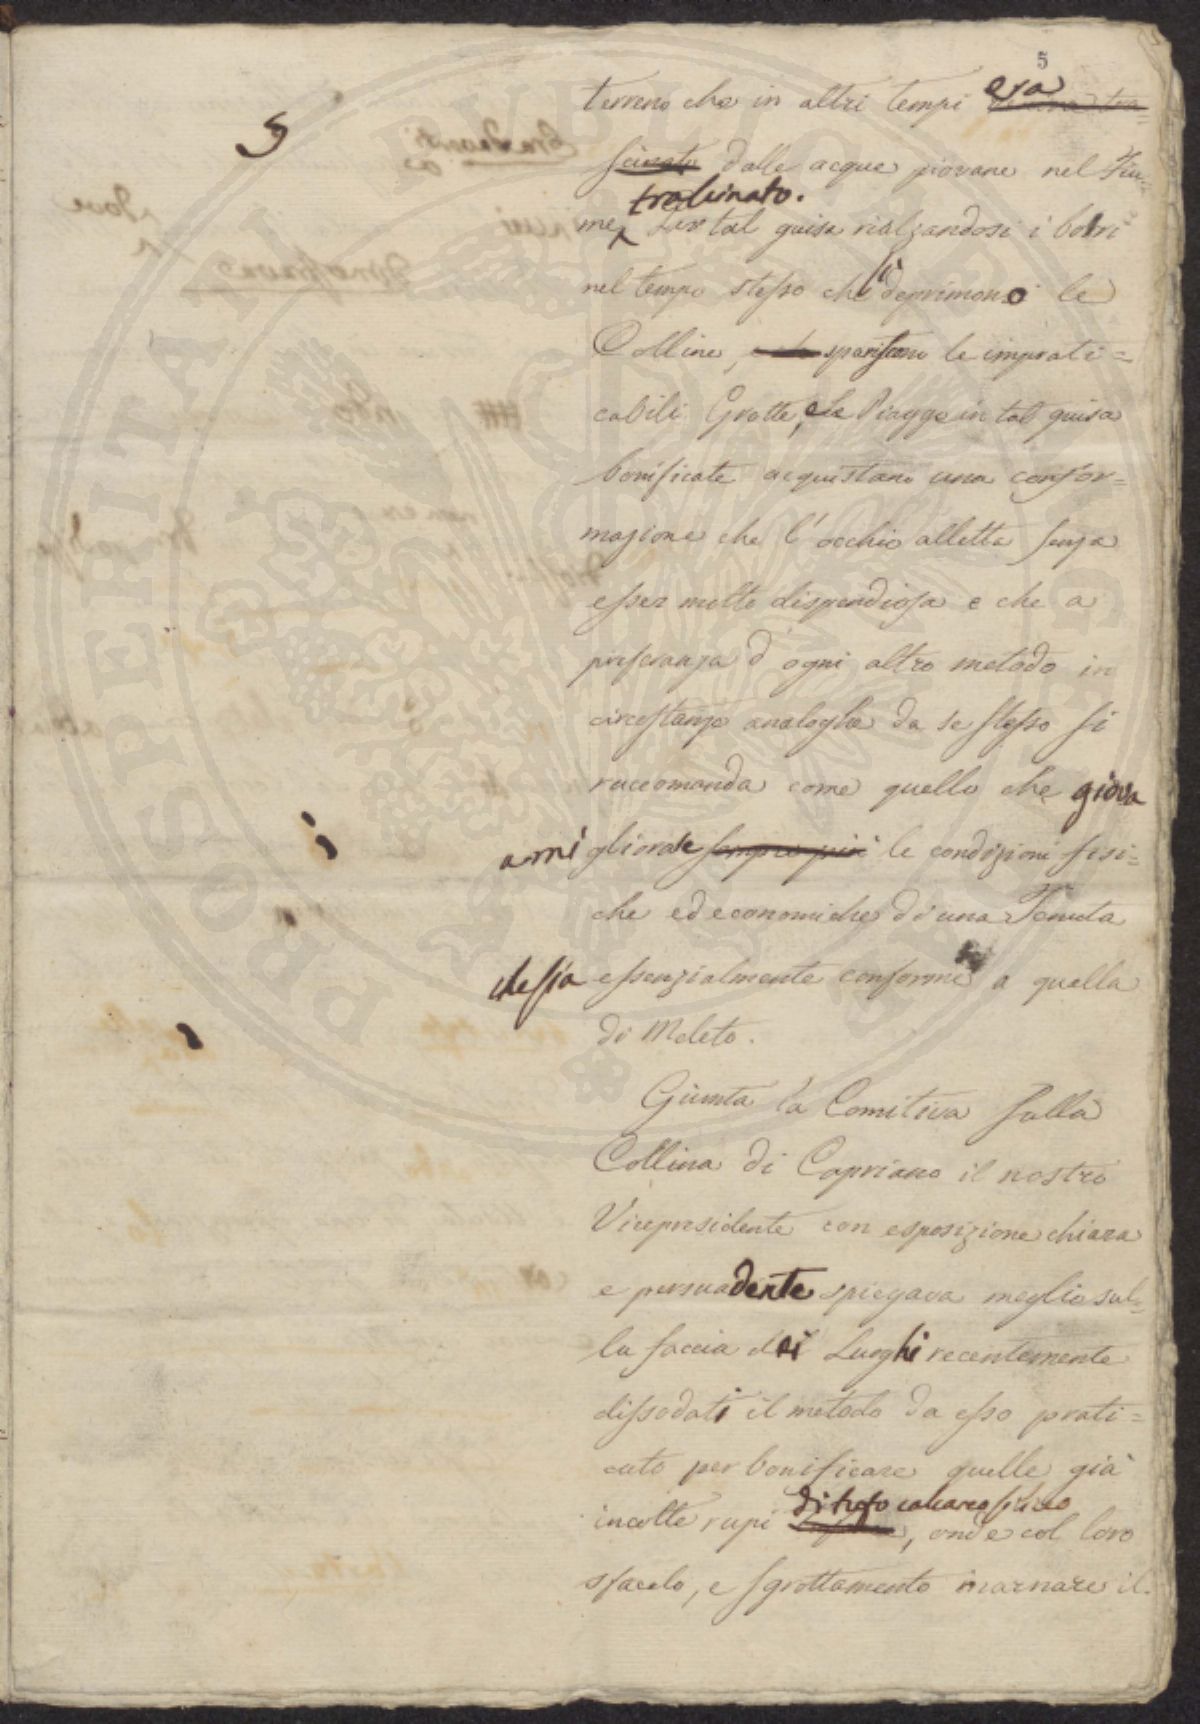 5
5
terreno che in altri tempi era
scinato dalle acque piovane nel Fiu=
trascinato.
me, In tal guisa rialzandosi i botri
nel tempo stesso che si deprimono le
Colline, spariscono le imprati=
cabili Grotte, e le Piagge in tal guisa
bonificate acquistano una confor=
mazione che l'occhio alletta senza
esser molto dispendiosa e che a
preferanza d'ogni altro metodo in
circostanze analoghe da se stesso si
raccomanda come quello che giova
a migliorare sempre più le condizioni fisi=
che ed economiche di una Tenuta
che sia essenzialmente conforme a quella
di Meleto.
Giunta la Comitiva sulla
Collina di Capriano il nostro
Vicepresidente con esposizione chiara
e persuadente spiegava meglio sul=
la faccia dei Luoghi recentemente
dissodati il metodo da esso prati=
cato per bonificare quelle già
di tufo calcareo siliceo
incolte rupi, onde col loro
sfacelo, e sgrottamento marnare il
PROSPERITATI PUBLICAE AUGENDAE